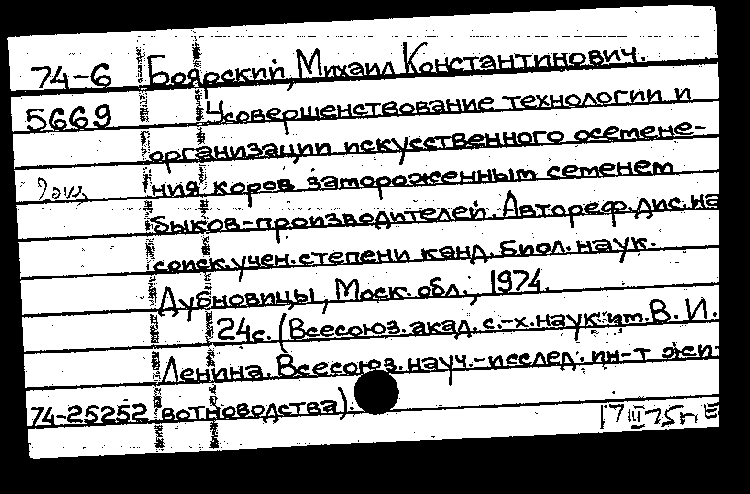 74-6 Боярский, Михаил Константинович.
5669 Усовершенствование технологии и
организации искусственного осемене-
ния коров замороженным семенем
быков-производителей. Автореф. дис. на
соиск. учен. степени канд. биол. наук.
Дубновицы, Моск. обл., 1974.
24с. (Всесоюз. акад. с.-х. наук им. В. И.
Ленина. Всесоюз. науч.-исслед. ин-т жи-
74-25252 вотноводства).
17 III 75г.